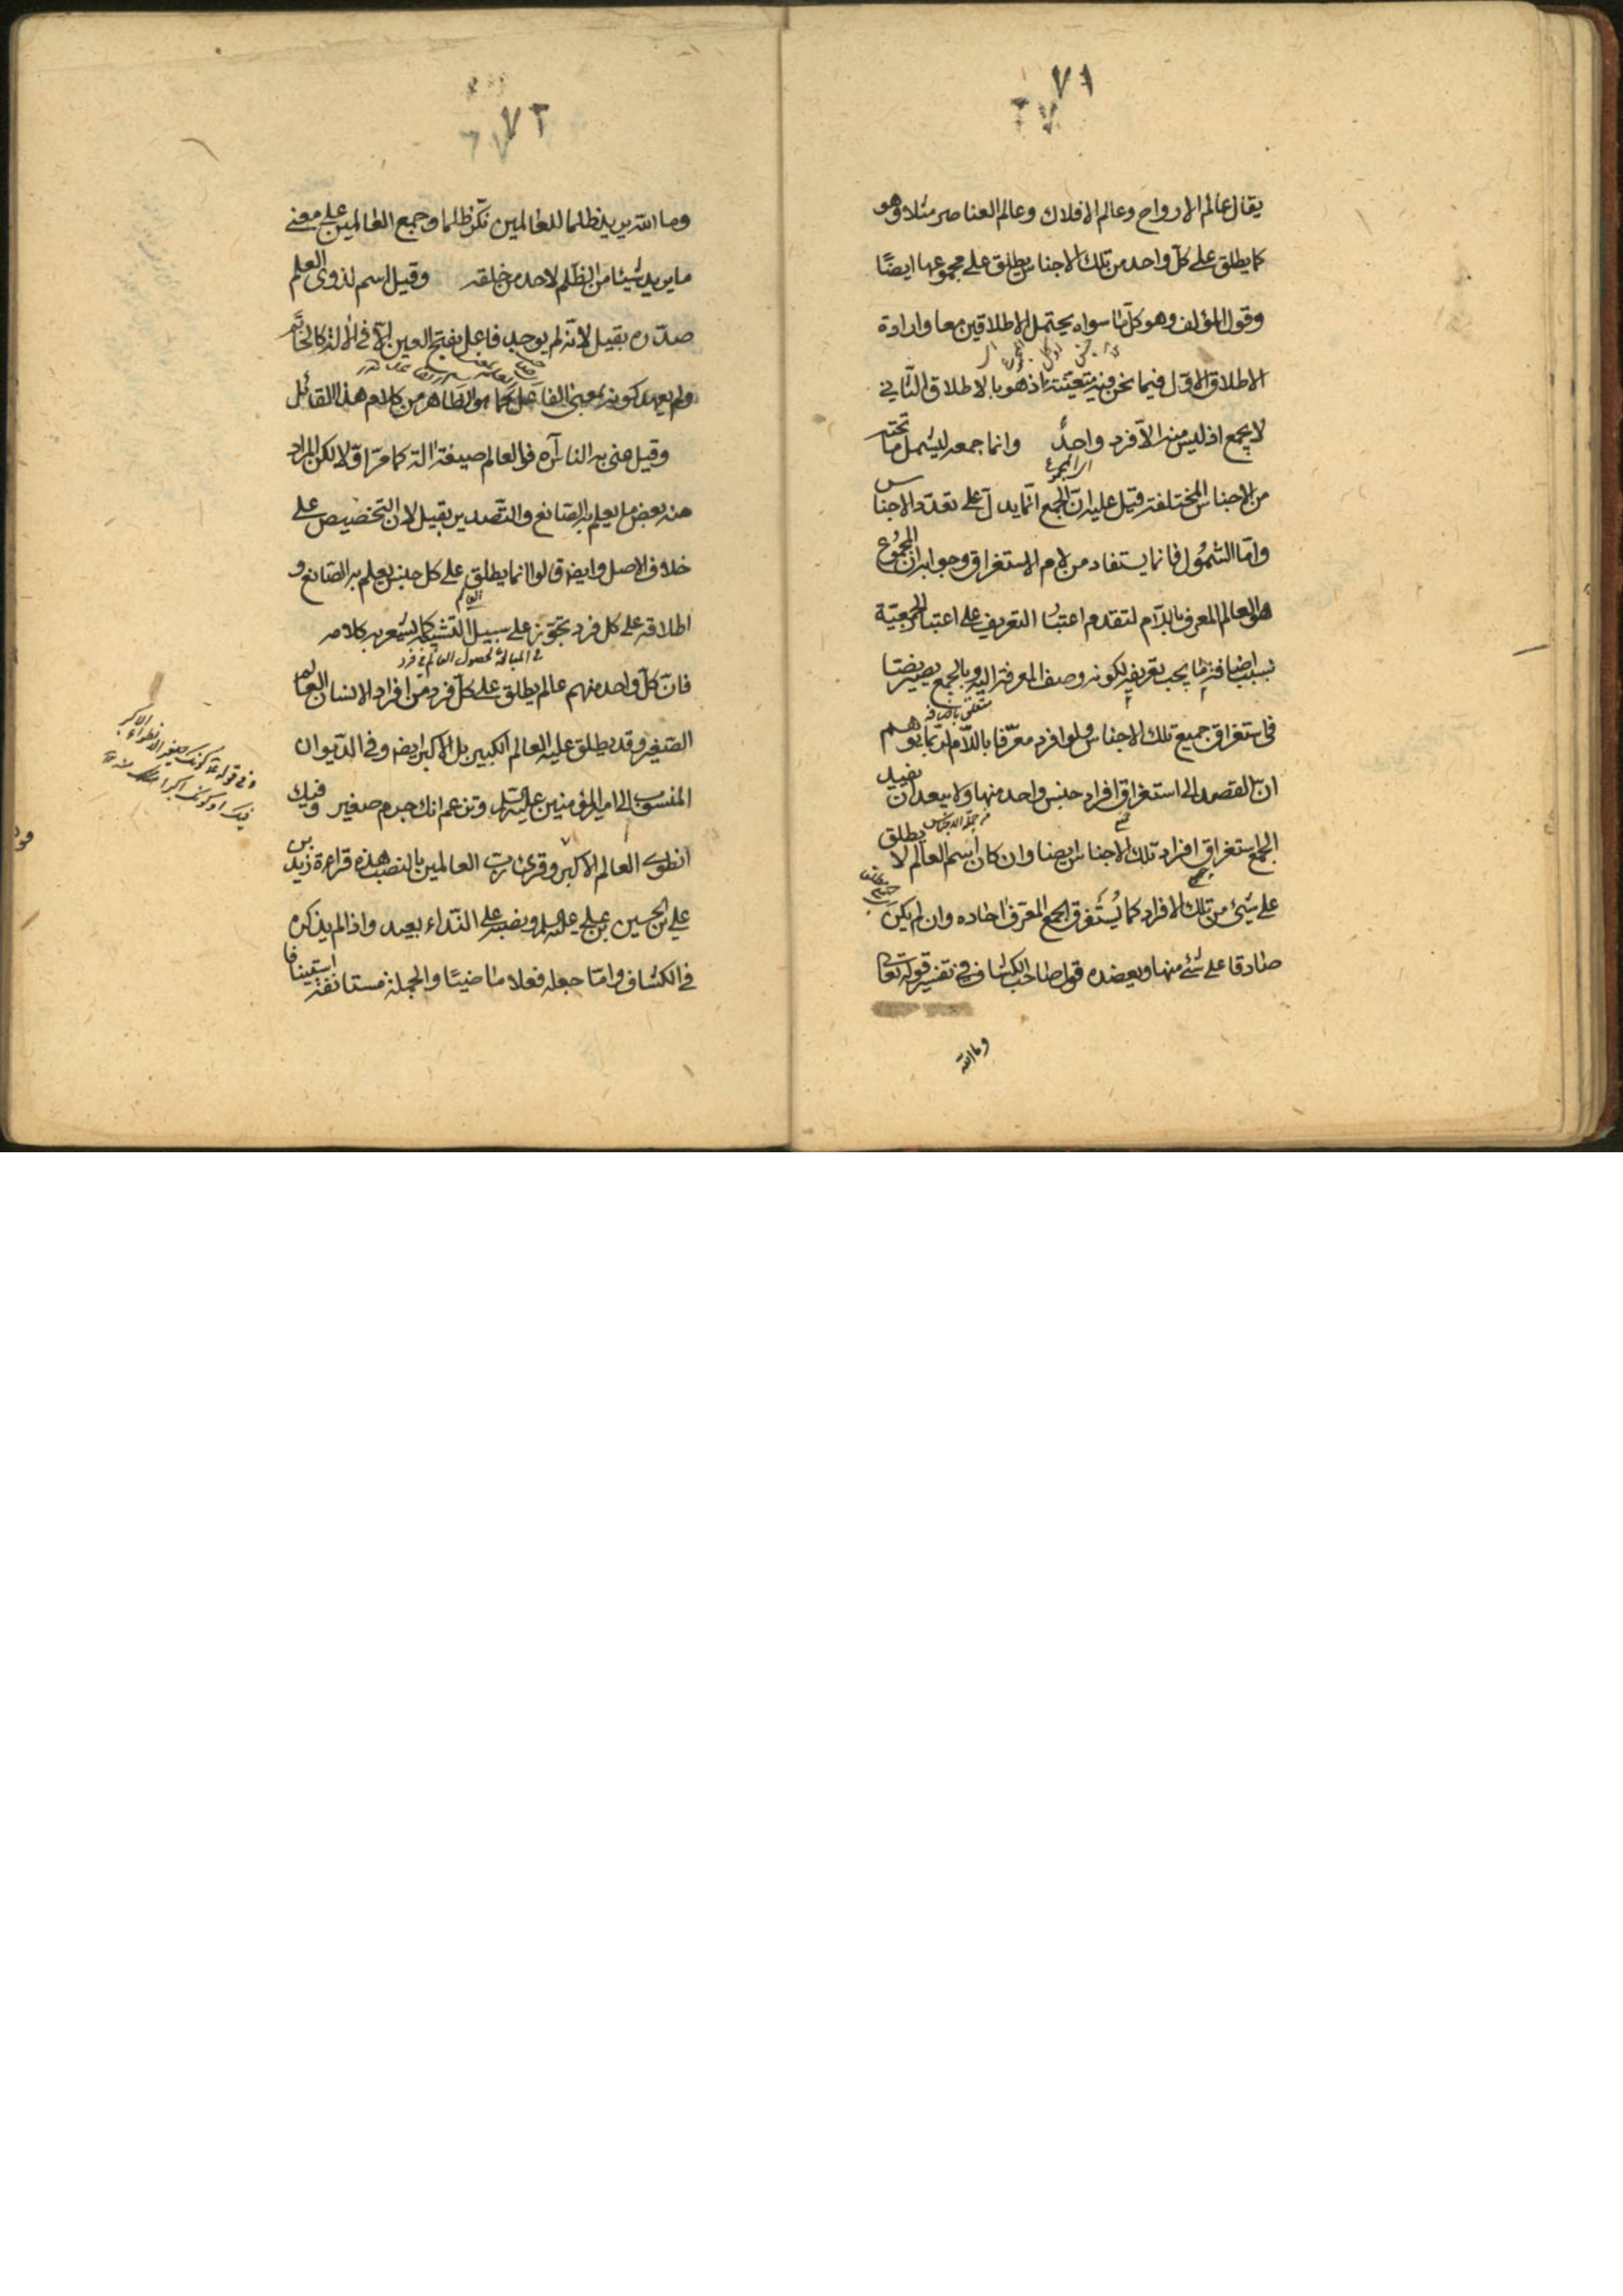 ٧١
يقال عالم الارواح وعالم الافلاك وعالم العناصر مثلا وهو
كما يطلق على كل واحد من تلك الاجناس يطلق على مجموعها ايضًا
وقول المؤلف وهو كل ما سواه يحتمل الاطلاقين معا وارادة
الاطلاق الاول فيما نحن فيه متعينة اذ هو بالاطلاق الثاني
لا يجمع اذ ليس منه الا فرد واحد وانما جمعه ليشمل ما تحته
من الاجناس المختلفة قيل عليه ان الجمع انما يدل على تعدد الاجناس
واما الشمول فانما يستفاد من لام الاستغراق وجوابه ان المجموع
هو العالم المعرف باللام لتقدم اعتبار التعريف على اعتبار الجمعية
بسبب اضافة ما يجب تعريفه لكونه وصف المعرفة اليه وبالجمع يصير نصا
فى استغراق جميع تلك الاجناس ولو افرد معرفا باللام لربما توهم
متعلق باضافة
ان القصد الى استغراق افراد جنس واحد منها ولا يبعد ان يفيد
الجمع استغراق افراد تلك الاجناس ايضا وان كان اسم العالم لا يطلق
على شئ من تلك الافراد كما يستغرق الجمع المعرف احاده وان لم يكن
صادقا على شئ منها ويعضده قول صاحب الكشاف فى تفسير قوله تعالى
وما الله
٧٢
وما الله يريد ظلما للعالمين نكر ظلما وجمع العالمين على معنى
ما يريد شيئا من الظلم لاحد من خلقه وقيل اسم لذوى العلم
صدره بقيل لانه لم يوجد فاعل بفتح العين الا فى الالة كالخاتم
ولم يعهد كونه بمعنى الفاعل كما هو الظاهر من كلام هذا القائل
وقيل عنى به الناس آه فالعالم صيغة الة كما مر اولا لكن المراد
منه بعض ما يعلم به الصانع والتصدير بقيل لان التخصيص على
خلاف الاصل وايضا قالوا انما يطلق على كل جنس يعلم به الصانع و
اطلاقه على كل فرد تجوز على سبيل التشبيه كما يشعر به كلامه
فان كل واحد منهم عالم يطلق على كل فرد من افراد الانسان العالم
الصغير وقد يطلق عليه العالم الكبير بل الاكبر ايضا وفى الديوان
المنسوب الى امير المؤمنين عليه السلام وتزعم انك جرم صغير وفيك
انطوى العالم الاكبر وقرئ رب العالمين بالنصب هذه قراءة زيد بن
على بن الحسين بن على عليه السلام ونصبه على النداء بعيد واذا لم يذكره
فى الكشاف واما جعله فعلا ماضيا والجملة مستانفة استينافا